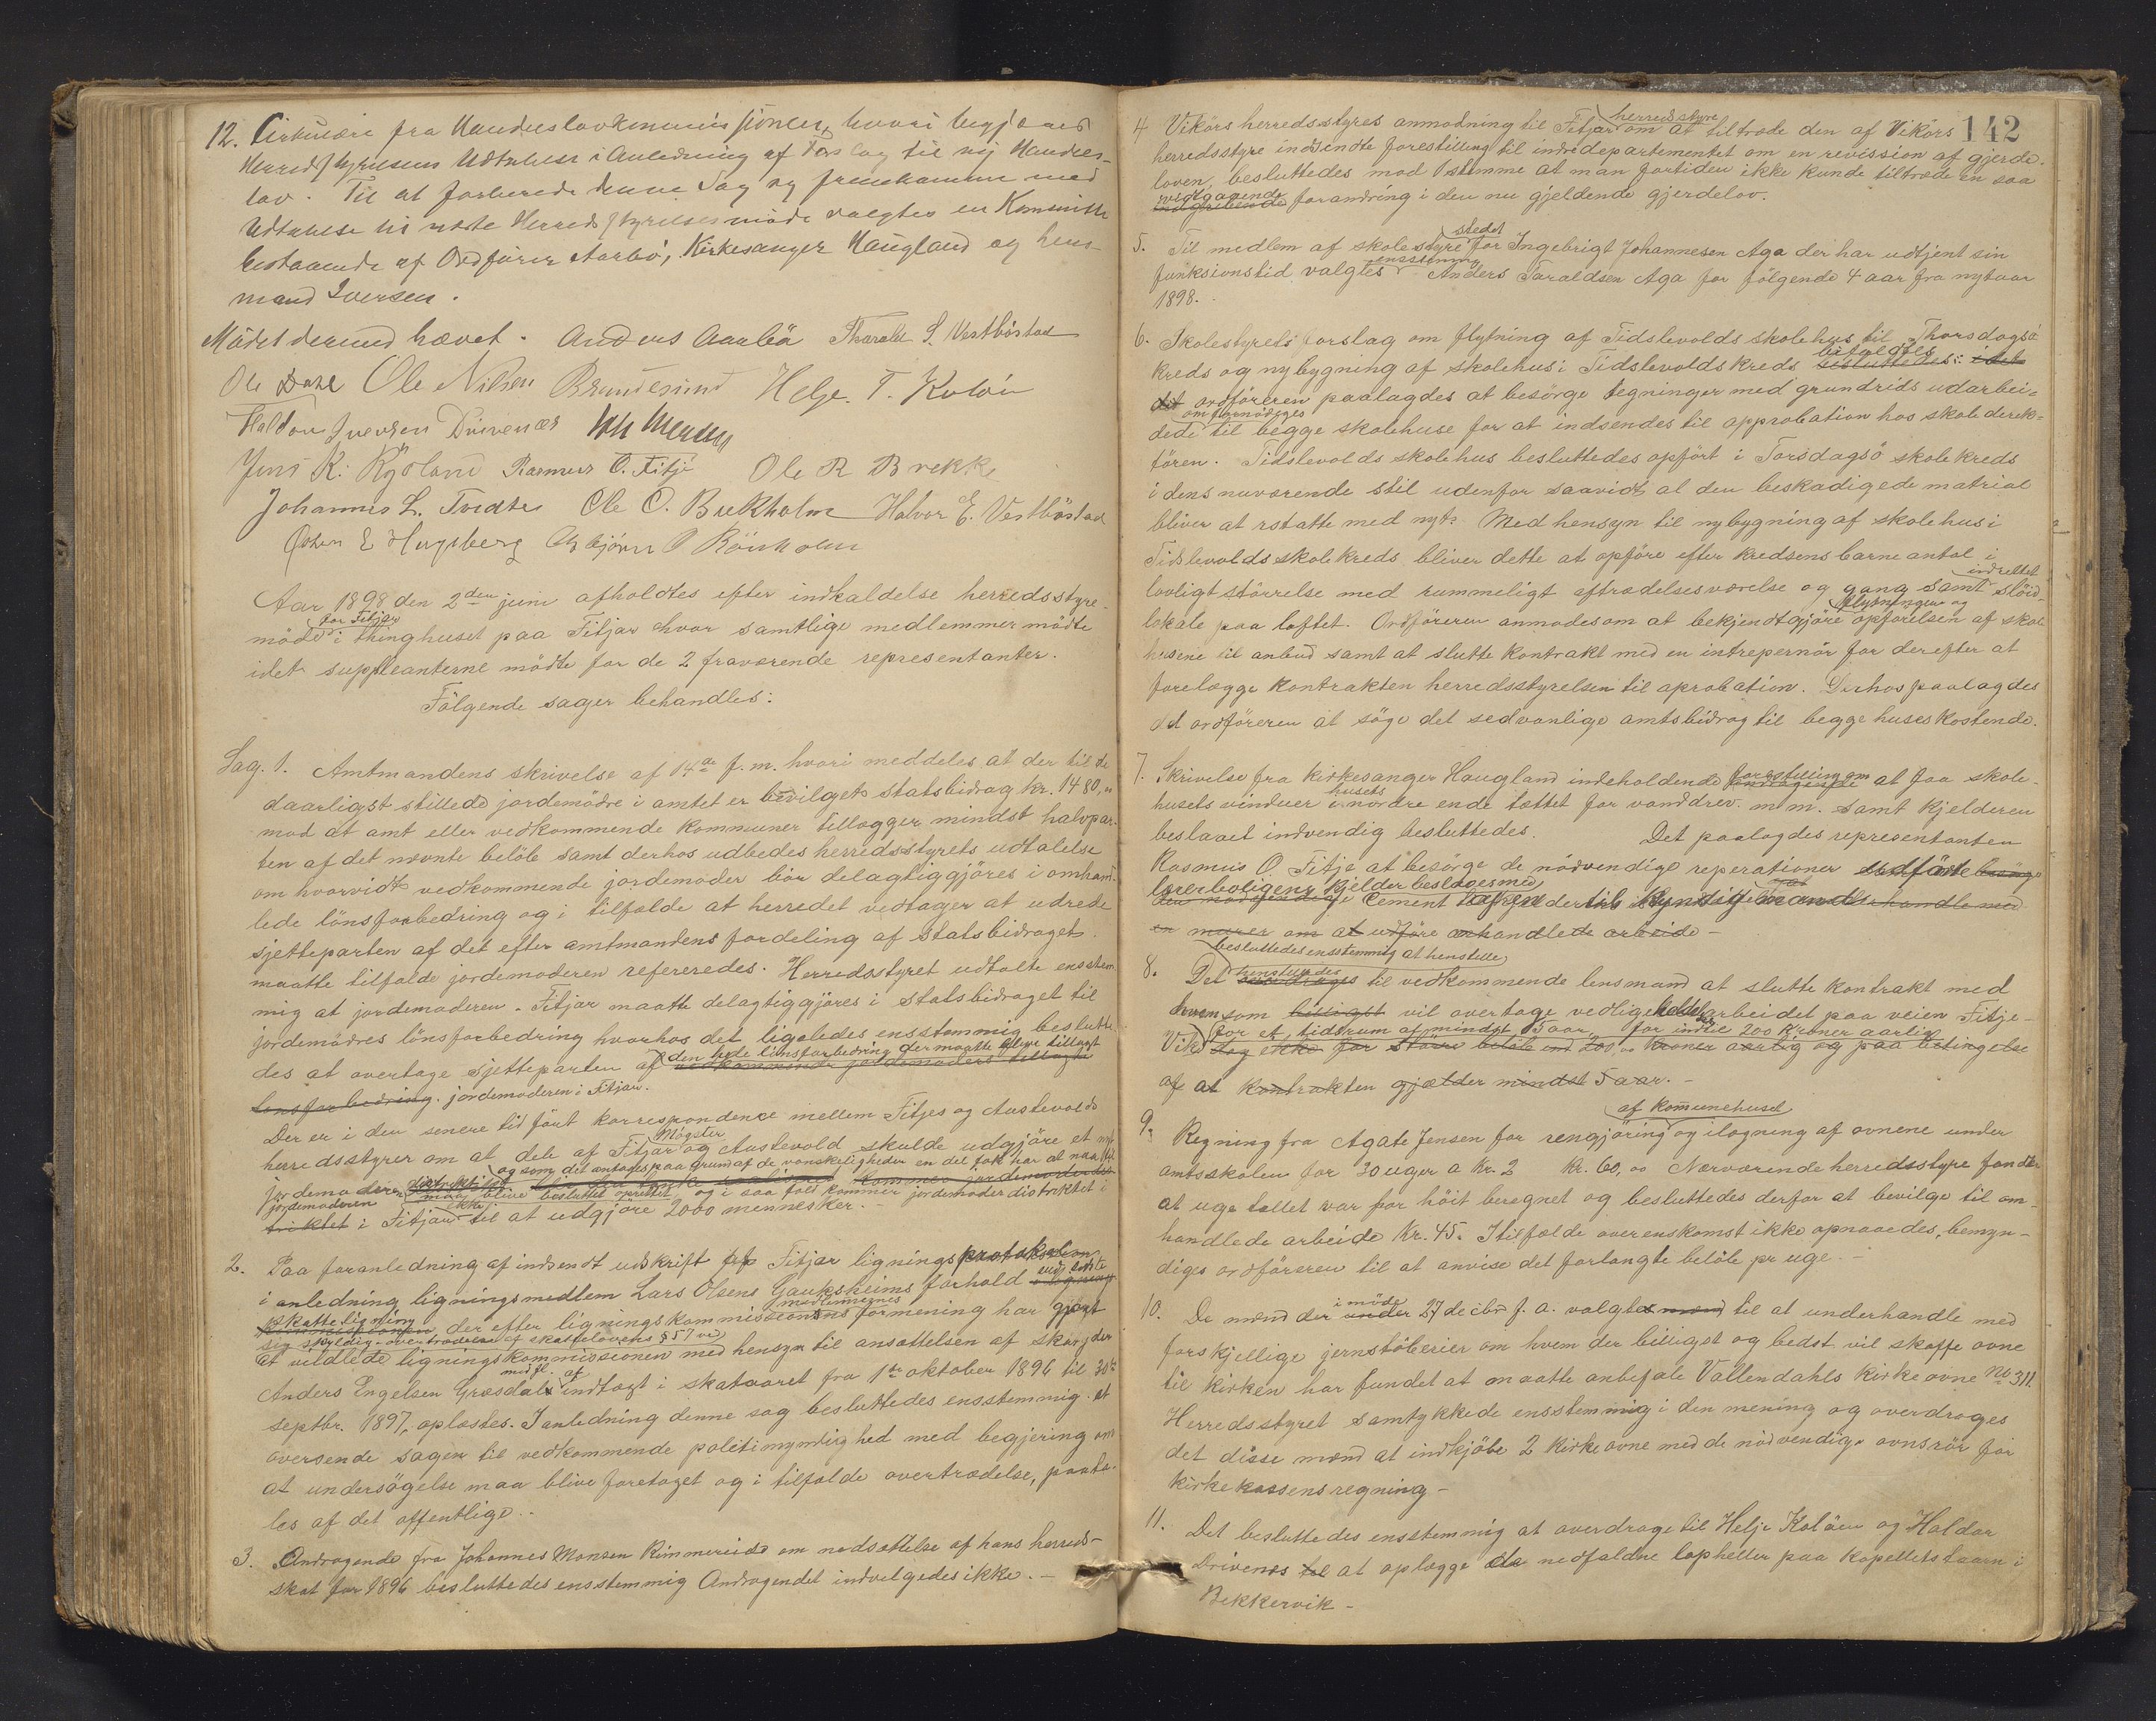 12. Cirkulære fra Handelslovkommissjonen, hvori begjæres
Herredsstyrelsens Udtalelse i Anledning af Forslag til ny Handels-
lov. Til at forberede denne Sag og fremkomme med
Udtalelse til næste Herredsstyrelsesmøde valgtes en Kommitte
bestaaende af Ordfører Aarbö, Kirkesanger Haugland og Lens-
mand Iversen.
Mödet dermed hævet. Anders Aarbö Tharald S. Vestböstad
Ole Dahl Ole Nilsen Brandesund Helge T. Koløen
Haldor Iversen Drivenes
Jens K. Rydland Rasmus O. Fitje Ole R Brekke
Johannes L. Tvedte Ole O. Bukholm Halvor E. Vestböstad
Johan E Hugsberg Asbjörn O Rönholm
Aar 1898 den 2den juni afholdtes efter indkaldelse herredsstyre-
for Fitjar
möde i thinghuset paa Fitjar hvor samtlige medlemmer mödte
idet suppleanterne mödte for de 2 fraværende representanter.
Fölgende sager behandles:
Sag. 1. Amtmandens skrivelse af 14de f.m. hvori meddeles at der til de
daarligst stillede jordemödre i amtet er bevilget statsbidrag kr. 1480,"
mod at amt eller vedkommende kommuner tillægger mindst halvpar-
ten af det nævnte belöb samt derhos udbedes herredsstyrets udtalelse
om hvorvidt vedkommende jordemoder bör delagtiggjöres i omhand-
lede lönsforbedring og i tilfælde at herredet vedtager at udrede
sjetteparten af det efter amtmandens fordeling af statsbidraget
maatte tilfalde jordemoderen refereredes. Herredsstyret udtalte enstem
mig at jordemoderen i Fitjar maatte delagtiggjöres i statsbidraget til
jordemödres lönsforbedring hvorhos det ligeledes ensstemmig beslutte
den hele lönsforbedring der maatte blive tillagt
des at overtage sjetteparten af vedkommende jordemoders tillagte
lønsforbedring. jordemoderen i Fitjar.
Der er i den senere tid fört korrespondence mellem Fitjes og Austevolds
Møgster
herredsstyrer om at dele af Fitjar og Austevold skulde udgjöre et nyt
og som det antages paa grund af de vanskeligheder en del folk har at naa
jordemoder distriktet
maa blive besluttet oprettet og i saa fald kommer jordemoderdistriktet i
jordemoderen ikke
triktet i Fitjar til at udgjöre 2000 mennesker.
2. Paa foranledning af indsendt udskrift af Fitjar ligningsprotokolen
i anledning ligningsmedlem Lars Olsens Gauksheims forhold ved sidste
skatteligning medlemmernes
kommissionen der efter ligningskommissionens formening har gjort
sig skyldig i overtrædelse af skattelovens § 57 ved
at vildlede ligningskommissionen med hensyn til ansættelsen af
Anders Engelsen Græsdal indtægt i skataaret fra 1ste oktober 1896 til 30te
septbr. 1897, oplæstes. I anledning denne sag besluttedes ensstemmig at
oversende sagen til vedkommende politimyndighed med begjering om
at undersögelse maa blive foretaget og i tilfælde overtrædelse, paata-
les af det offentlige.
3. Andragende fra Johannes Monsen Rimmereide om nedsættelse af hans herreds-
skat for 1896 besluttedes ensstemmig Andragendet indvilgedes ikke. —
142
herredsstyre
4 Vikörs herredsstyres anmodning til Fitjar om at tiltræde den af Vikörs
herredsstyre indsendte forestilling til indredepartementet om en revission af gjerde-
loven, besluttedes mod 1 stemme at man fortiden ikke kunde tiltræde en saa
vedtgaaende
indgribende forandring i den nu gjeldende gjerdelov.
stedet
5. Til medlem af skolestyre for Ingebrigt Johannesen Aga der har udtjent sin
ensstemmig
funksionstid valgtes Anders Taraldsen Aga for fölgende 4 aar fra nytaar
1898.
6. Skolestyrets forslag om flytning af Tidslevolds skolehus til Thorsdagsö
bifaldtes
kreds og nybygning af skolehus i Tidslevolds kreds besluttedes: idet
det ordföreren paalagdes at besörge tegninger med grundrids udarbei-
om fornödiges
dede til begge skolehuse for at indsendes til approbation hos skoledirek-
tören. Tidslevolds skolehus besluttedes opfört i Torsdagsö skolekreds
i dens nuværende stil udenfor saavidt al den beskadigede matrial
bliver at rstatte med nyt. Med hensyn til nybygning af skolehus i
Tidslevolds skolekreds bliver dette at opföre efter kredsens barneantal i
indrettet
lovligt störrelse med rummeligt aftrædelsesværelse og gang samt slöid-
flytningen og
lokale paa loftet. Ordföreren anmodes om at bekjendtgjöre opförelsen af skole
husene til anbud samt at slutte kontrakt med en intrepernör for derefter at
forelægge kontrakten herredsstyrelsen til aprobation. Derhos paalagdes
det ordföreren at söge det sedvanlige amtsbidrag til begge huses kostende.
7. Skrivelse fra kirkesanger Haugland indeholdende forestilling om at faa skole-
husets
husets vinduer i nordre ende tættet for vanddrev. m. m. samt kjelderen
beslaaet indvendig besluttedes. Det paalagdes representanten
Rasmus O. Fitje at besörge de nödvendige reperationer udförte besörge
lærerboligens kjelder beslagesmed
den nödvendige Cement
en murer om at udföre omhandlede arbeide —
besluttedes ensstemmig at henstille
8. Det henstilledes til vedkommende lensmand at slutte kontrakt med
hvem som billigst vil overtage vedligeholdelsarbeidet paa veien Fitje-
for et tidsrum af mindst 5 aar, for indtil 200 kroner aarlig
Vik dog ikke for större belöb end 200,oo kroner aarlig og paa betingelse
af at kontrakten gjælder mindst 5 aar. —
af komunehuset
9. Regning fra Agate Jensen for rengjöring og ilægning af ovnene under
amtsskolen for 30 uger a Kr. 2 Kr. 60,oo Nærværende herredsstyre fandt
at uge tallet var for höit beregnet og besluttedes derfor at bevilge til om-
handlede arbeide Kr. 45. I tilfælde overenskomst ikke opnaaedes, bemyn-
diges ordföreren til at anvise det forlangte belöb pr uge. —
i möde
10. De mænd der under 27 decbr f. a. valgtes mænd til at underhandle med
forskjellige jernstöberier om hvem der billigst og bedst vil skaffe ovne
til kirken har fundet at maatte anbefale Vallendahls kirkeovne No 311.
Herredsstyret samtykkede ensstemmig i den mening og overdroges
det disse mænd at indkjöbe 2 kirkeovne med de nödvendige ovnsrör for
kirkekassens regning —
11. Det besluttedes ensstemmig at overdrage til Helje Koløen og Haldor
Drivenes til at oplægge de nedfaldne lapheller paa kapellets taarn i
Bekkervik —